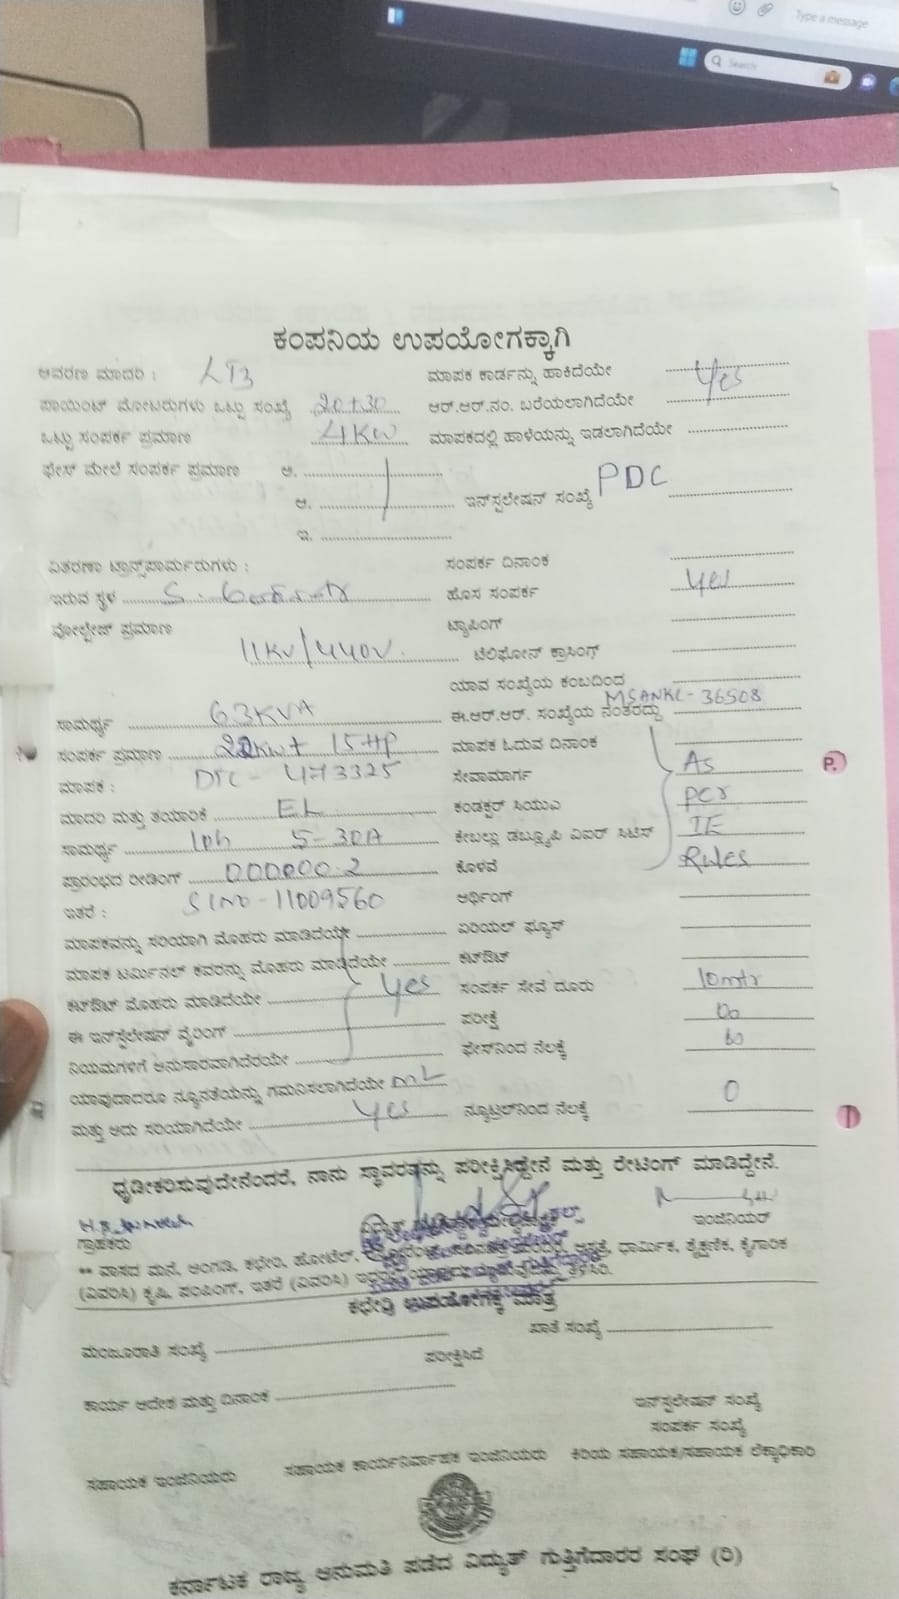 Type a message
Search
ಕಂಪನಿಯ ಉಪಯೋಗಕ್ಕಾಗಿ
ಆವರಣ ಮಾದರಿ : LT3 ಮಾಪಕ ಕಾರ್ಡನ್ನು ಹಾಕಿದೆಯೇ Yes
ಪಾಯಿಂಟ್ ಮೋಟರುಗಳು ಒಟ್ಟು ಸಂಖ್ಯೆ 20+30 ಆರ್.ಆರ್.ನಂ. ಬರೆಯಲಾಗಿದೆಯೇ
ಒಟ್ಟು ಸಂಪರ್ಕ ಪ್ರಮಾಣ 4KW ಮಾಪಕದಲ್ಲಿ ಹಾಳೆಯನ್ನು ಇಡಲಾಗಿದೆಯೇ
ಫೇಸ್ ಮೇಲೆ ಸಂಪರ್ಕ ಪ್ರಮಾಣ ಅ.
ಆ. ಇನ್‌ಸ್ಟಲೇಷನ್ ಸಂಖ್ಯೆ PDC
ಇ.
ವಿತರಣಾ ಟ್ರಾನ್ಸ್‌ಫಾರ್ಮರುಗಳು : ಸಂಪರ್ಕ ದಿನಾಂಕ
ಇರುವ ಸ್ಥಳ ಹೊಸ ಸಂಪರ್ಕ Yes
ವೋಲ್ಟೇಜ್ ಪ್ರಮಾಣ ಟ್ಯಾಪಿಂಗ್
11KV/440V ಟೆಲಿಫೋನ್ ಕ್ರಾಸಿಂಗ್
ಯಾವ ಸಂಖ್ಯೆಯ ಕಂಬದಿಂದ
ಸಾಮರ್ಥ್ಯ 63KVA ಈ.ಆರ್.ಆರ್. ಸಂಖ್ಯೆಯ ನಂತರದ್ದು MSANKL-36508
ಸಂಪರ್ಕ ಪ್ರಮಾಣ 22KW+ 15HP ಮಾಪಕ ಓದುವ ದಿನಾಂಕ
ಮಾಪಕ : DTC - 473325 ಸೇವಾಮಾರ್ಗ As
ಮಾದರಿ ಮತ್ತು ತಯಾರಿಕೆ EL ಕಂಡಕ್ಟರ್ ಸಿಯುಎ per
ಸಾಮರ್ಥ್ಯ 1ph 5-30A ಕೇಬಲ್ಲು ಡಬ್ಲ್ಯೂಪಿ ವಿಐಆರ್ ಸಿಟಿಸ್ IE
ಪ್ರಾರಂಭದ ರೀಡಿಂಗ್ 000000.2 ಕೊಳವೆ Rules
ಇತರೆ : Slno-11009560 ಅರ್ಥಿಂಗ್
ಮಾಪಕವನ್ನು ಸರಿಯಾಗಿ ಮೊಹರು ಮಾಡಿದೆಯೇ ಏರಿಯಲ್ ಫ್ಯೂಸ್
ಮಾಪಕ ಟರ್ಮಿನಲ್ ಕವರನ್ನು ಮೊಹರು ಮಾಡಿದೆಯೇ ಕಟ್‌ಔಟ್
ಕಟ್‌ಔಟ್ ಮೊಹರು ಮಾಡಿದೆಯೇ Yes ಸಂಪರ್ಕ ಸೇವೆ ದೂರು 10mtr
ಈ ಇನ್‌ಸ್ಟಲೇಷನ್ ವೈರಿಂಗ್ ಪರೀಕ್ಷೆ
ನಿಯಮಗಳಿಗೆ ಅನುಸಾರವಾಗಿದೆರೆಯೇ ಫೇಸ್‌ನಿಂದ ನೆಲಕ್ಕೆ
ಯಾವುದಾದರೂ ನ್ಯೂನತೆಯನ್ನು ಗಮನಿಸಲಾಗಿದೆಯೇ
ಮತ್ತು ಅದು ಸರಿಯಾಗಿದೆಯೇ Yes ನ್ಯೂಟ್ರಲ್‌ನಿಂದ ನೆಲಕ್ಕೆ 0
ಧೃಡೀಕರಿಸುವುದೇನೆಂದರೆ, ನಾನು ಸ್ಥಾವರವನ್ನು ಪರೀಕ್ಷಿಸಿದ್ದೇನೆ ಮತ್ತು ರೇಟಿಂಗ್ ಮಾಡಿದ್ದೇನೆ.
ಗ್ರಾಹಕರು ಇಂಜಿನಿಯರ್
** ವಾಸದ ಮನೆ, ಅಂಗಡಿ, ಕಛೇರಿ, ಹೋಟೆಲ್, ಆಸ್ಪತ್ರೆ, ಧಾರ್ಮಿಕ, ಶೈಕ್ಷಣಿಕ, ಕೈಗಾರಿಕೆ
(ವಿವರಿಸಿ) ಕೃಷಿ, ಪಂಪಿಂಗ್, ಇತರೆ (ವಿವರಿಸಿ) ತಿಳಿಸಿರಿ.
ಕಛೇರಿ ಉಪಯೋಗಕ್ಕೆ ಮಾತ್ರ
ಮಂಜೂರಾತಿ ಸಂಖ್ಯೆ ಪರೀಕ್ಷಿಸಿದೆ ಖಾತೆ ಸಂಖ್ಯೆ
ಕಾರ್ಯ ಆದೇಶ ಮತ್ತು ದಿನಾಂಕ ಇನ್‌ಸ್ಟಲೇಷನ್ ಸಂಖ್ಯೆ
ಸಂಪರ್ಕ ಸಂಖ್ಯೆ
ಸಹಾಯಕ ಇಂಜಿನಿಯರು ಸಹಾಯಕ ಕಾರ್ಯನಿರ್ವಾಹಕ ಇಂಜಿನಿಯರು ಕಿರಿಯ ಸಹಾಯಕ/ಸಹಾಯಕ ಲೆಕ್ಕಾಧಿಕಾರಿ
ಕರ್ನಾಟಕ ರಾಜ್ಯ ಅನುಮತಿ ಪಡೆದ ವಿದ್ಯುತ್ ಗುತ್ತಿಗೆದಾರರ ಸಂಘ (ರಿ)